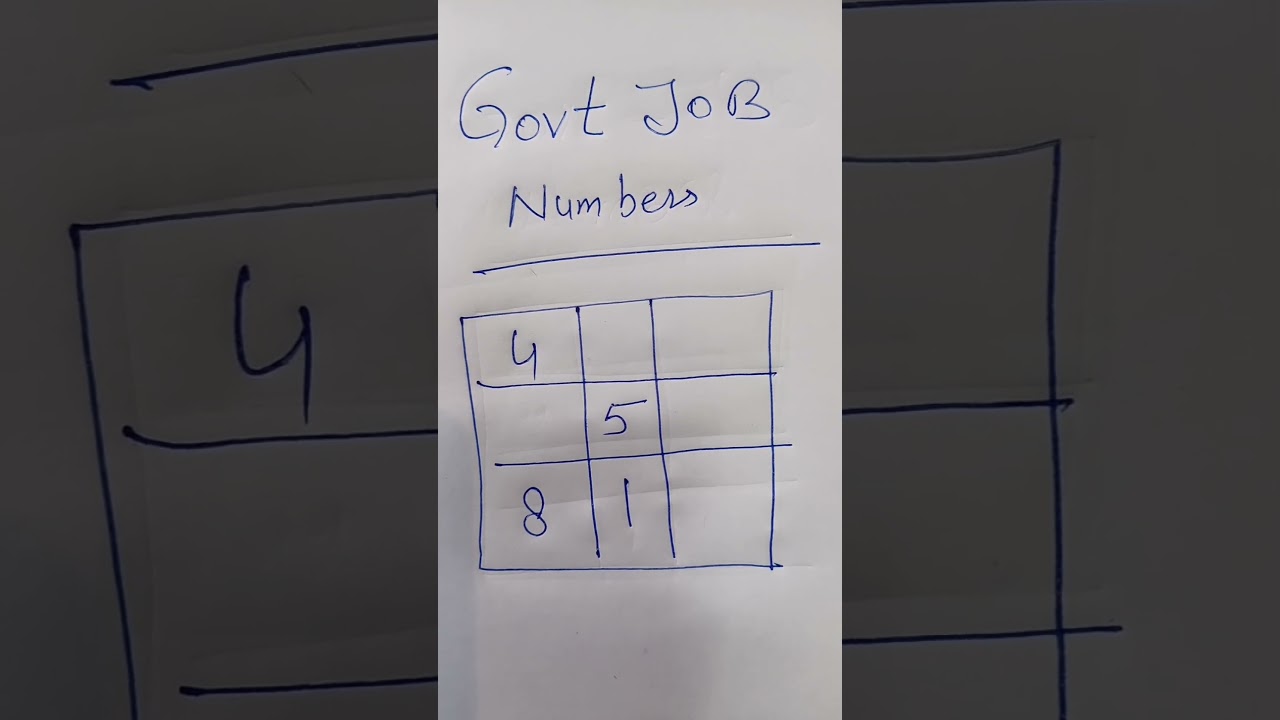 Govt JOB
Numbers
4
5
8 1
4